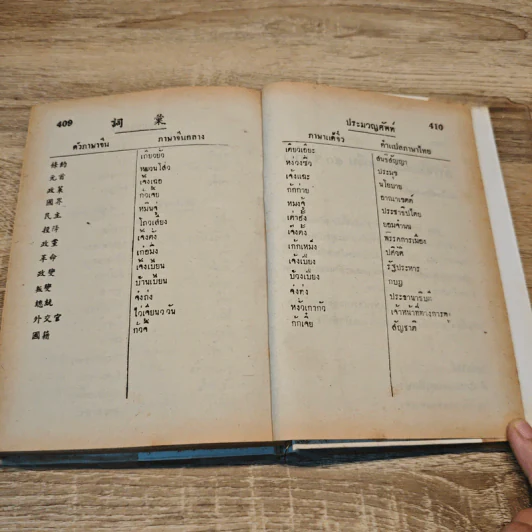 409 詞彙
ตัวภาษาจีน ภาษาจีนกลาง
條約
元首
政策
國界
民主
投降
政黨
革命
政變
叛變
總統
外交官
國籍
เถียวยัว
หยวนโส่ว
เจิ้งเฉ้อ
ก๋วเจี้ย
หมินจู่
โถวเสียง
เจิ้งตั่ง
เก๋อมิ่ง
เจิ้งเปี้ยน
จ๋งถ่ง
ประมวญศัพท์ 410
ภาษาแต้จิ๋ว คำแปลภาษาไทย
เตียวเอี๊ยะ
หงวงซิ่ว
เจ้งแฉะ
กักก่าย
หมงจู้
เต่าฮั้ง
เจ๊งตั้ง
เก๊กเหมี่ง
เจ้งเปี่ยง
จ๋งท่ง
หงัวเกากัว
กักเจี๊ย
สนธิสัญญา
ประมุข
นโยบาย
อาณาเขตต์
ประชาธิปไตย
ยอมจำนน
พรรคการเมือง
ปติวัติ
รัฐประหาร
กบฏ
ประธานาธิบดี
เจ้าหน้าที่ทางการทูต
สัญชาติ